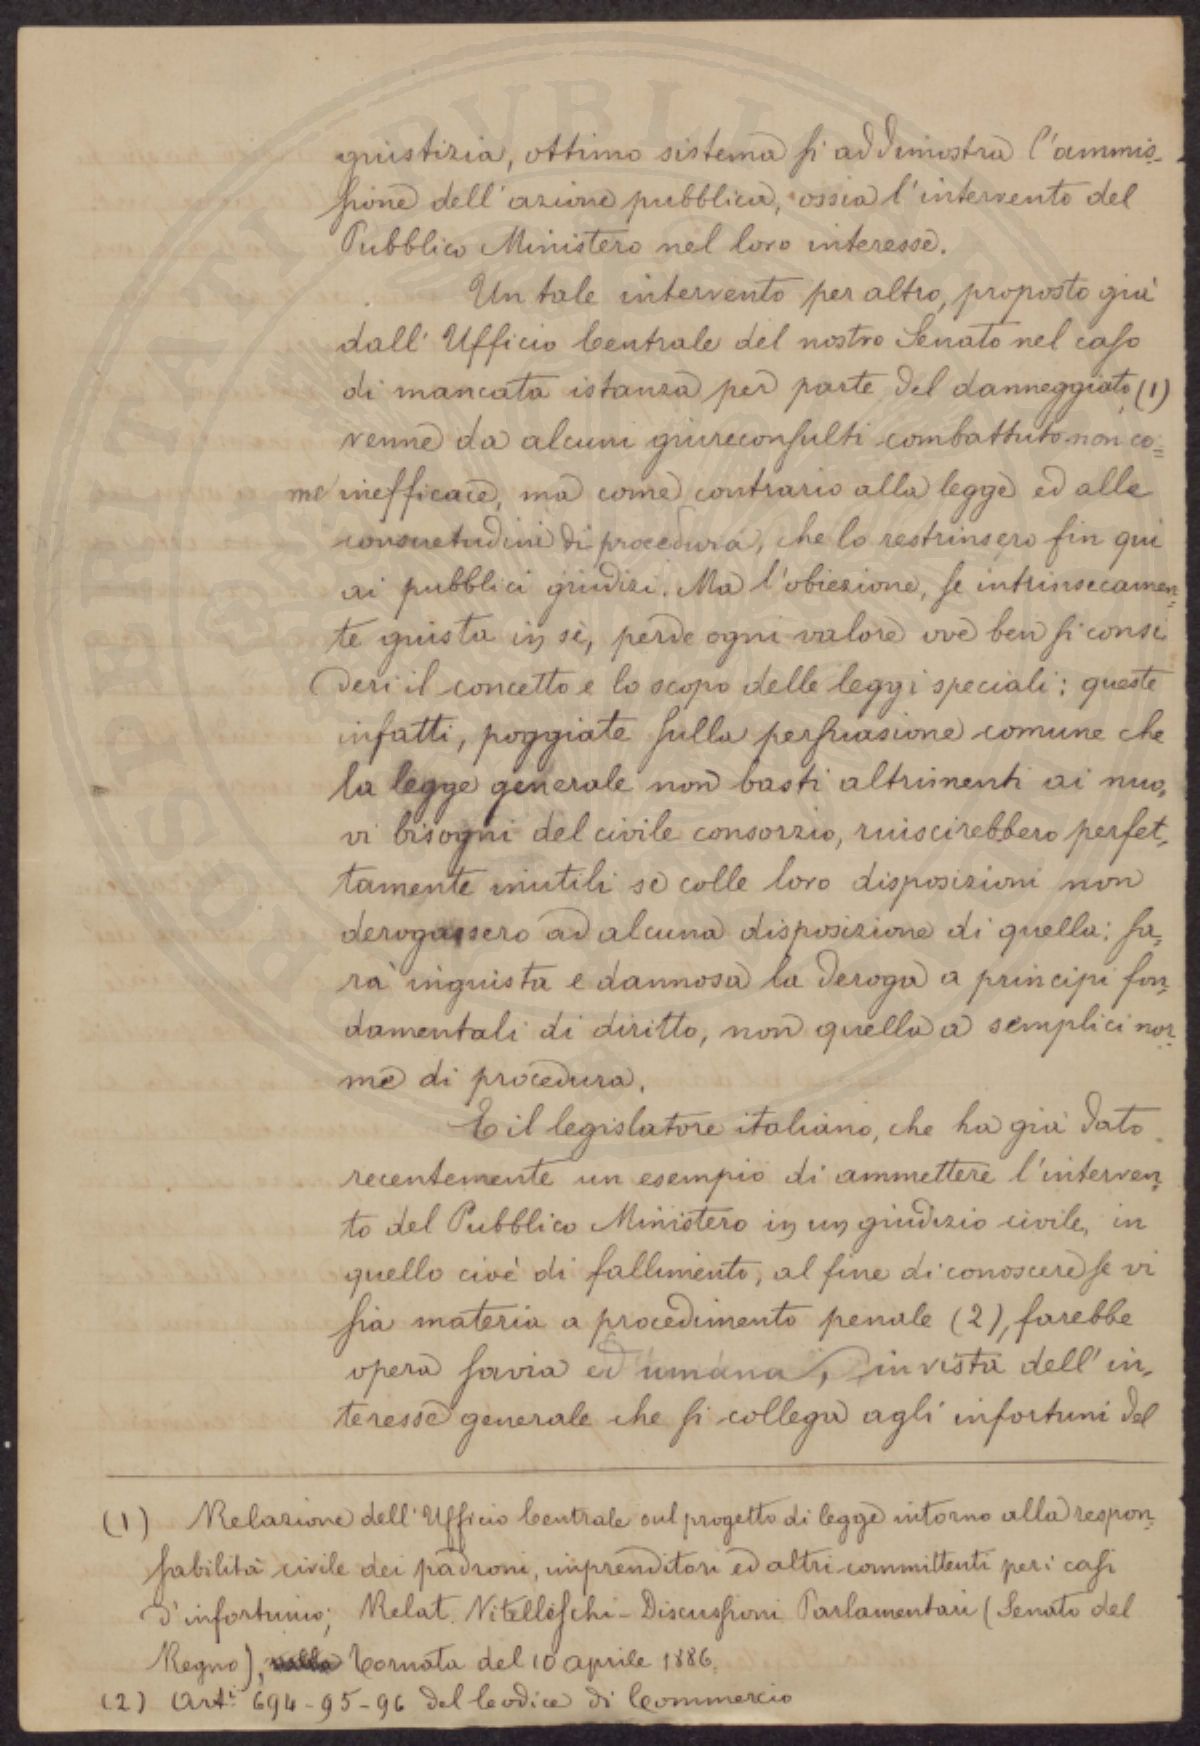 giustizia, ottimo sistema si addimostra l'ammis-
sione dell'azione pubblica, ossia l'intervento del
Pubblico Ministero nel loro interesse.
Un tale intervento per altro, proposto già
dall'Ufficio Centrale del nostro Senato nel caso
di mancata istanza per parte del danneggiato (1)
venne da alcuni giureconsulti combattuto non co=
me inefficace, ma come contrario alla legge ed alle
consuetudini di procedura, che lo restrinsero fin qui
ai pubblici giudizi. Ma l'obiezione, se intrinsecamen=
te giusta in sè, perde ogni valore ove ben si consi
deri il concetto e lo scopo delle leggi speciali: queste
infatti, poggiate sulla persuasione comune che
la legge generale non basti altrimenti ai nuo-
vi bisogni del civile consorzio, riuscirebbero perfet-
tamente inutili se colle loro disposizioni non
derogassero ad alcuna disposizione di quella: sa-
rà ingiusta e dannosa la deroga a principi fon-
damentali di diritto, non quella a semplici nor-
me di procedura.
E il legislatore italiano, che ha già dato
recentemente un esempio di ammettere l'interven-
to del Pubblico Ministero in un giudizio civile, in
quello cioè di fallimento, al fine di conoscere se vi
sia materia a procedimento penale (2), farebbe
opera savia ed umana, in vista dell'in-
teresse generale che si collega agli infortuni del
(1) Relazione dell'Ufficio Centrale sul progetto di legge intorno alla respon-
sabilità civile dei padroni, imprenditori ed altri committenti pei casi
d'infortunio; Relat. Vitelleschi - Discussioni Parlamentari (Senato del
Regno), Tornata del 10 aprile 1886.
(2) Arti. 694-95-96 del Codice di Commercio
POSPERITATI PVBLI